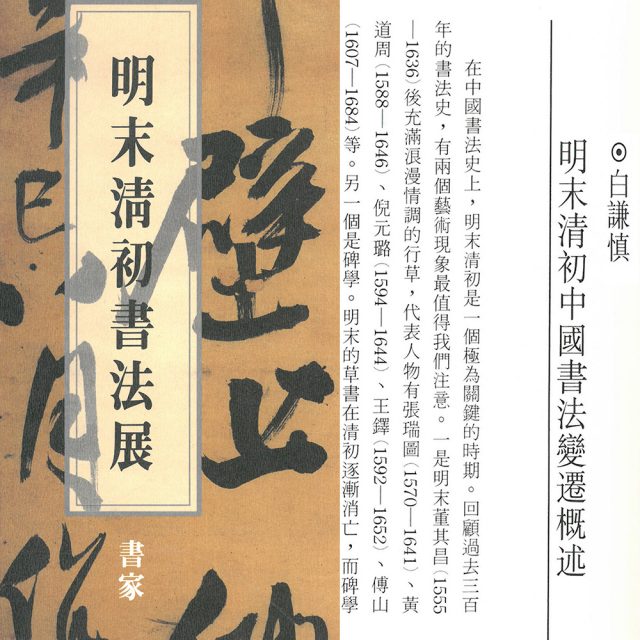 明末清初書法展
書家
壁上
⊙白謙慎
明末清初中國書法變遷概述
在中國書法史上，明末清初是一個極為關鍵的時期。回顧過去三百
年的書法史，有兩個藝術現象最值得我們注意。一是明末董其昌(1555
—1636)後充滿浪漫情調的行草，代表人物有張瑞圖(1570—1641)、黃
道周(1588—1646)、倪元璐(1594—1644)、王鐸(1592—1652)、傅山
(1607—1684)等。另一個是碑學。明末的草書在清初逐漸消亡，而碑學